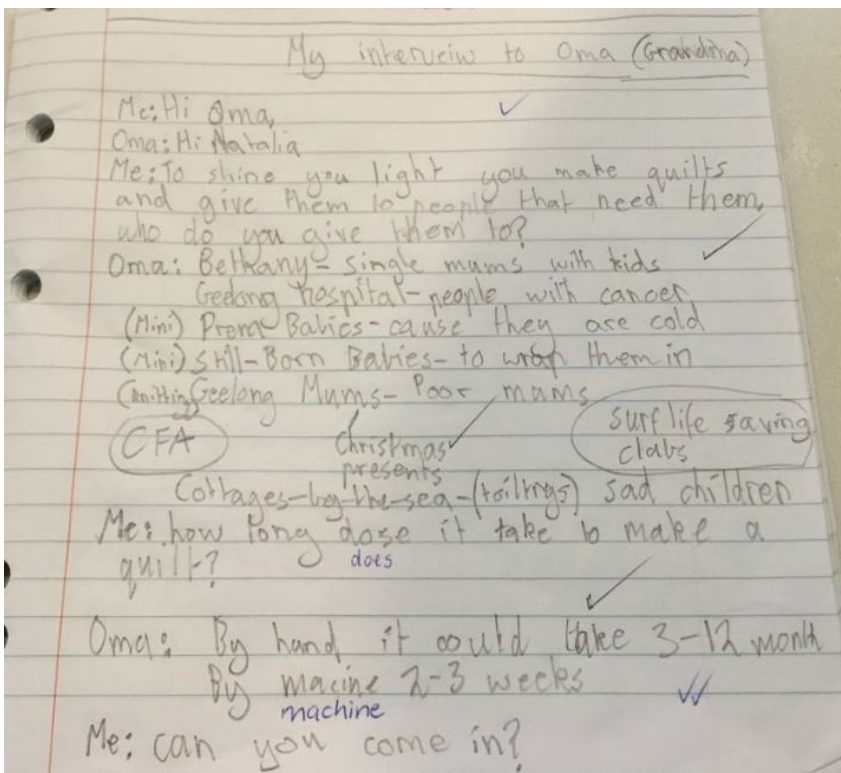 My interveiw to Oma (Grandma)
Me: Hi Oma,
Oma: Hi Natalia
Me: To shine you light you make quilts
and give them to people that need them,
who do you give them to?
Oma: Bethany- single mums with kids
Geelong hospital- people with cancer
(Mini) Prem Babies- cause they are cold
(Mini) Still-Born Babies- to wrap them in
Geelong Mums- Poor mums
CFA
Christmas
presents
surf life saving
clubs
Cottages-by-the-sea- sad children
Me: how long dose it take to make a
does
quilt?
Oma: By hand it could take 3-12 month
By macine 2-3 weeks
machine
Me: can you come in?